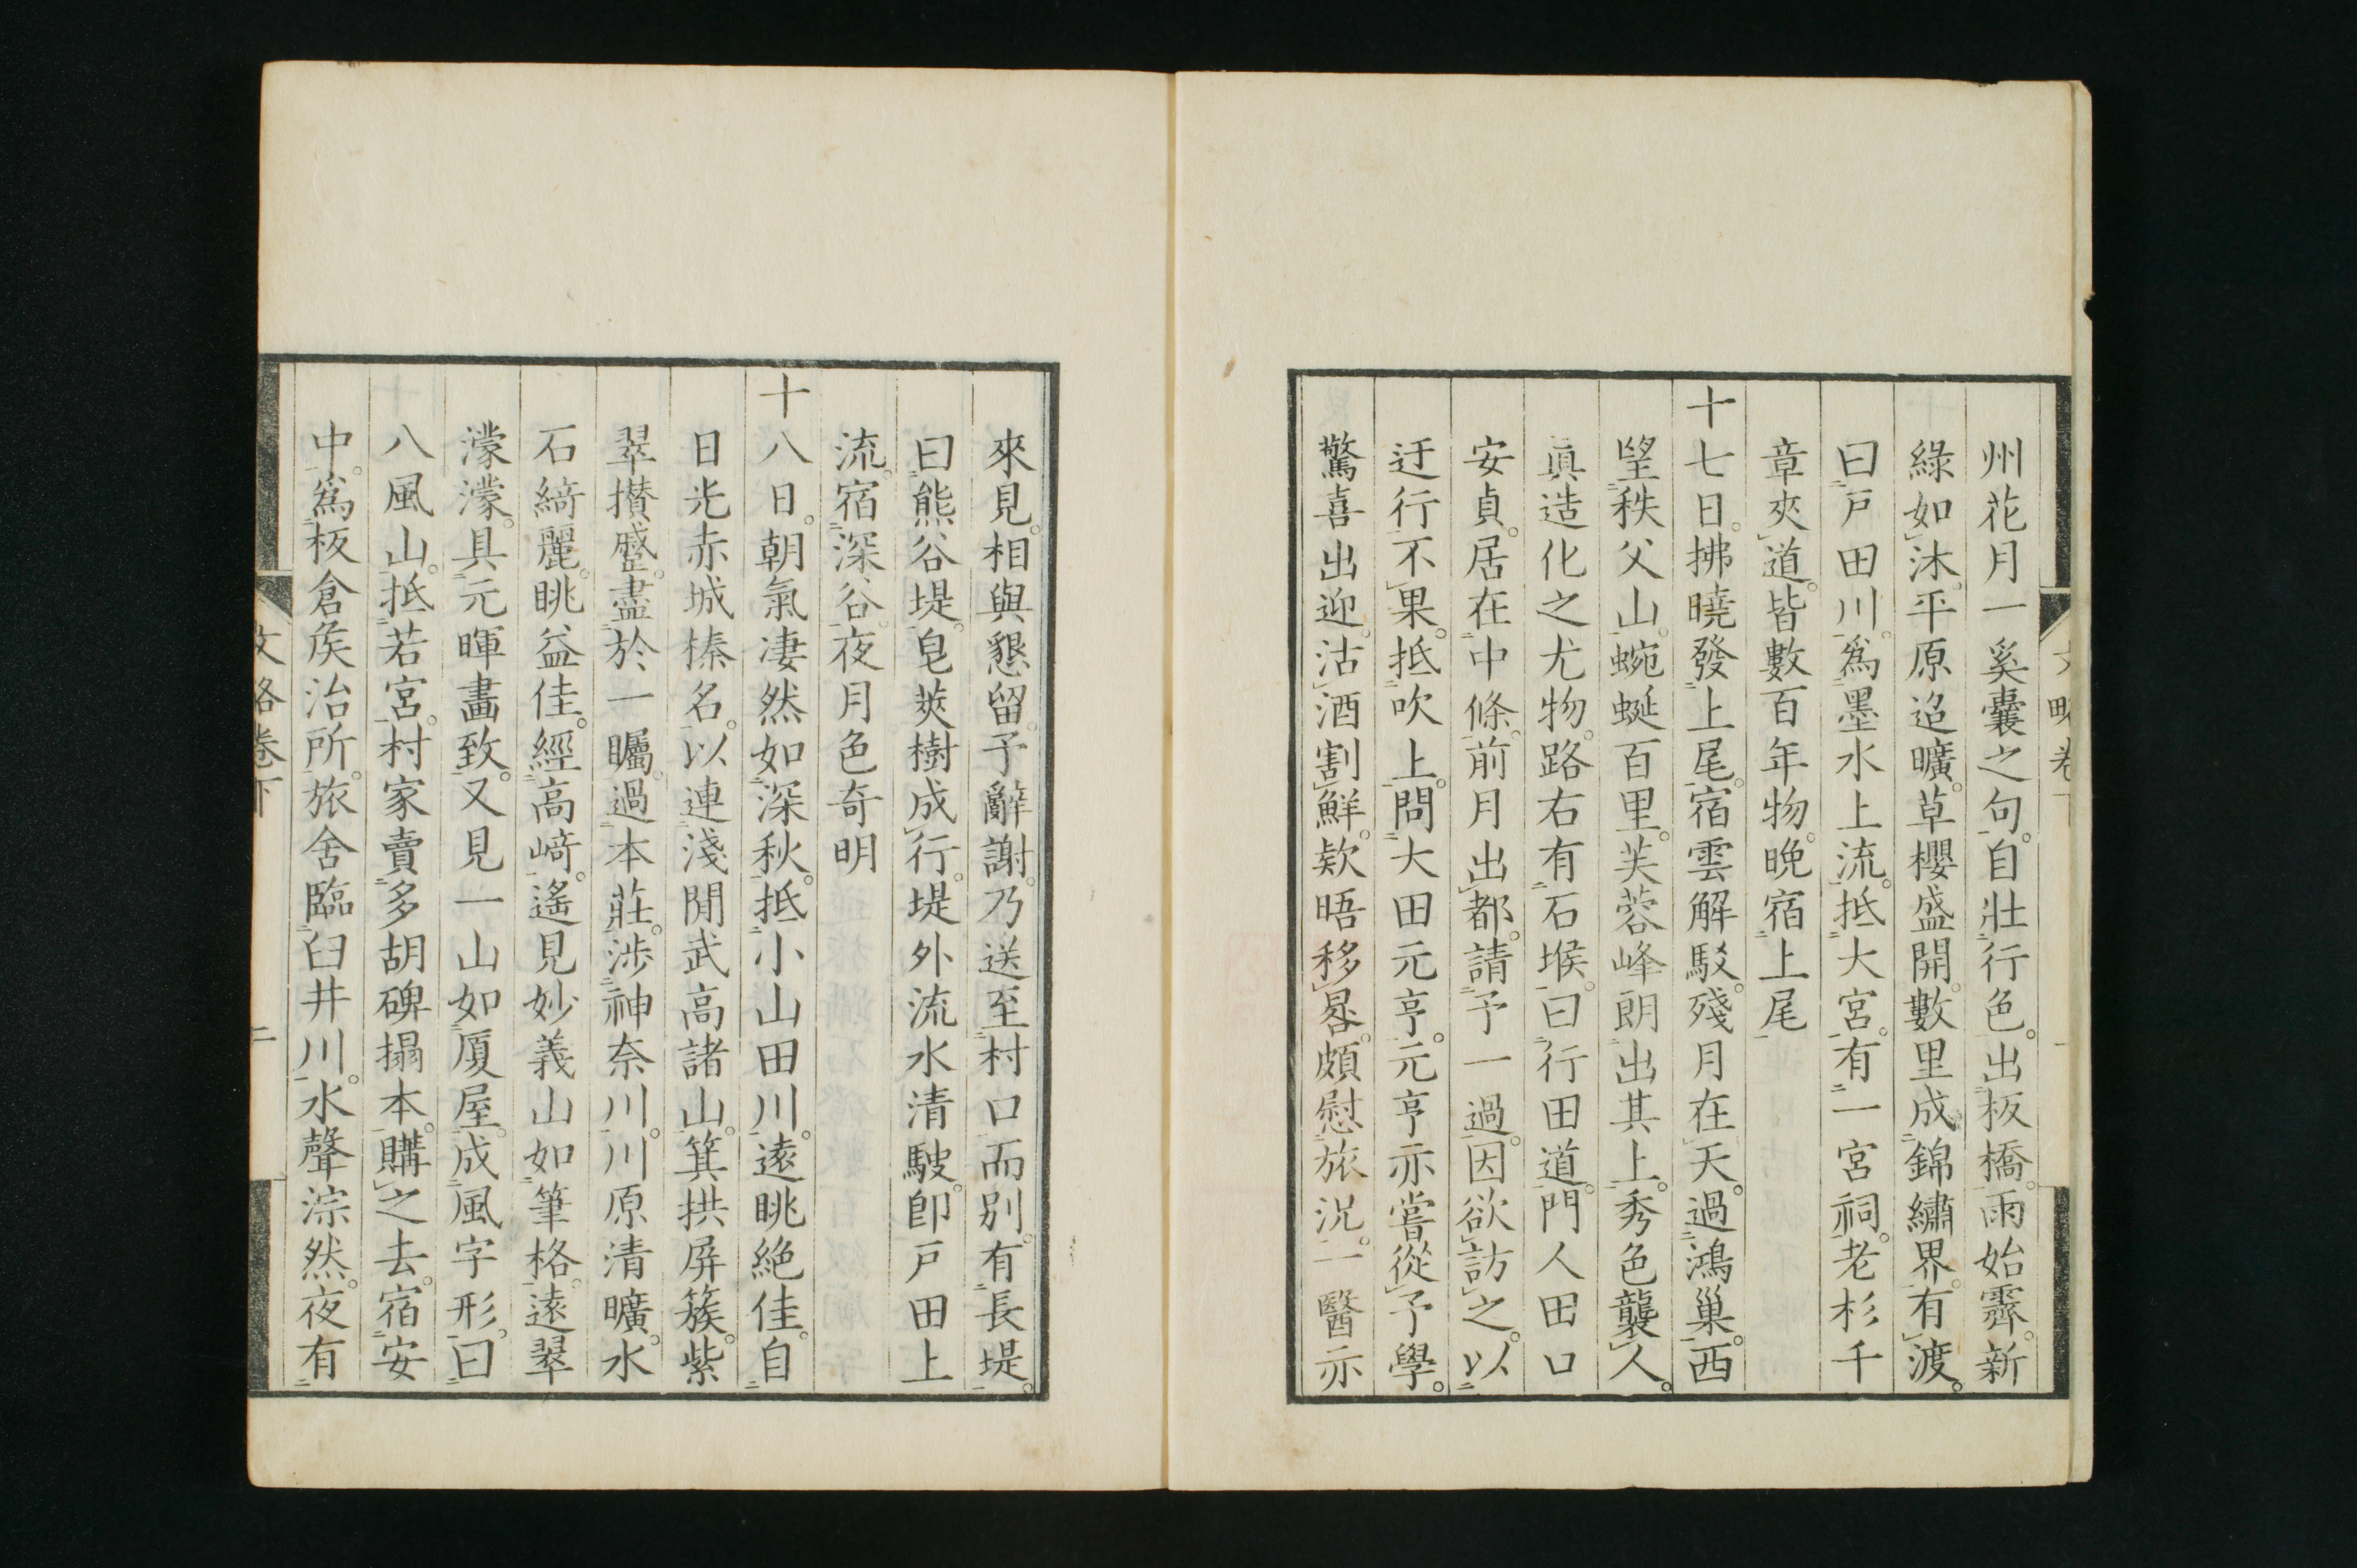 州花月一奚囊之句。自壯行色。出板橋。雨始霽。新
綠如沐。平原迢曠。草櫻盛開。數里成錦繡界。有渡。
曰戸田川。爲墨水上流。抵大宮。有一宮祠。老杉千
章夾道。皆數百年物。晩宿上尾
十七日。拂曉發上尾。宿雲解駁。殘月在天。過鴻巢。西
望秩父山。蜿蜒百里。芙蓉峰朗出其上。秀色襲人。
眞造化之尤物。路右有石堠。曰行田道。門人田口
安貞。居在中條。前月出都。請予一過。因欲訪之。以
迂行不果。抵吹上。問大田元亨。元亨亦嘗從予學。
驚喜出迎。沽酒割鮮。欵晤移晷。頗慰旅況。一醫亦
來見。相與懇留。予辭謝。乃送至村口而別。有長堤。
曰熊谷堤。皂莢樹成行。堤外流水清駛。卽戸田上
流。宿深谷。夜月色奇明
十八日。朝氣凄然如深秋。抵小山田川。遠眺絶佳。自
日光赤城榛名。以連淺閒武高諸山。箕拱屏簇。紫
翠攅蹙。盡於一矚。過本莊。渉神奈川。川原清曠。水
石綺麗。眺益佳。經高﨑。遙見妙義山如筆格。遠翠
濛濛。具元暉畫致。又見一山如厦屋。成風字形。曰
八風山。抵若宮。村家賣多胡碑搨本。購之去。宿安
中。爲板倉矦治所。旅舍臨臼井川。水聲淙然。夜有
文略卷下
二